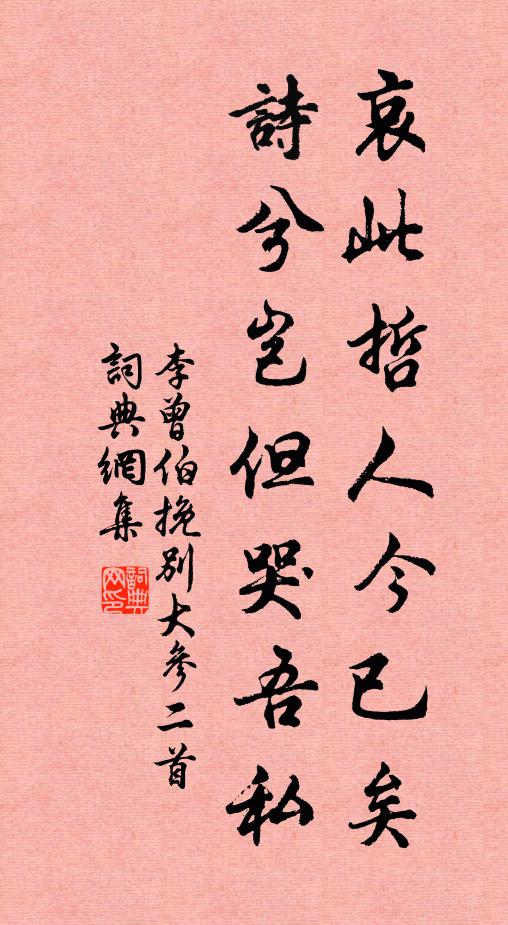 哀此哲人今已矣
詩兮岂但哭吾私
李曾伯挽别大參二首
詞典網集
詞典网印